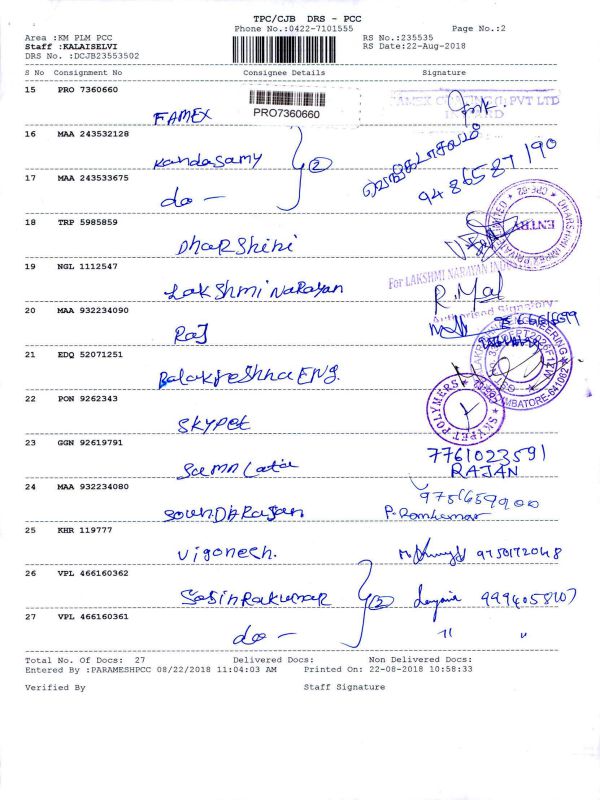 TPC/CJB DRS - PCC
Phone No.:0422-7101555
Page No.:2
Area :KM PLM PCC
RS No.:235535
Staff :KALAISELVI
RS Date:22-Aug-2018
DRS No. :DCJB23553502
S No Consignment No Consignee Details Signature
15 PRO 7360660
PRO7360660
FAMEX
PVT LTD
16 MAA 243532128
Kandasamy 2
வெங்கடாசலம்
9486587190
17 MAA 243533675
do -
18 TRP 5985859
Dharshini
ENTRY
19 NGL 1112547
Lakshmi Narayan
For LAKSHMI NARAYAN
R. Mal
Authorised Signatory
20 MAA 932234090
Raj
21 EDQ 52071251
Balakreshna ENG.
22 PON 9262343
SKYPET
SKYPET POLYMERS
23 GGN 92619791
Suman Lata
7761023591
RAJAN
24 MAA 932234080
SounDARajan
P. Ramkumar
25 KHR 119777
Vigonesh.
9750172048
26 VPL 466160362
Sasindrakumar 2
9994058107
27 VPL 466160361
do - " "
Total No. Of Docs: 27 Delivered Docs: Non Delivered Docs:
Entered By :PARAMESHPCC 08/22/2018 11:04:03 AM Printed On: 22-08-2018 10:58:33
Verified By Staff Signature